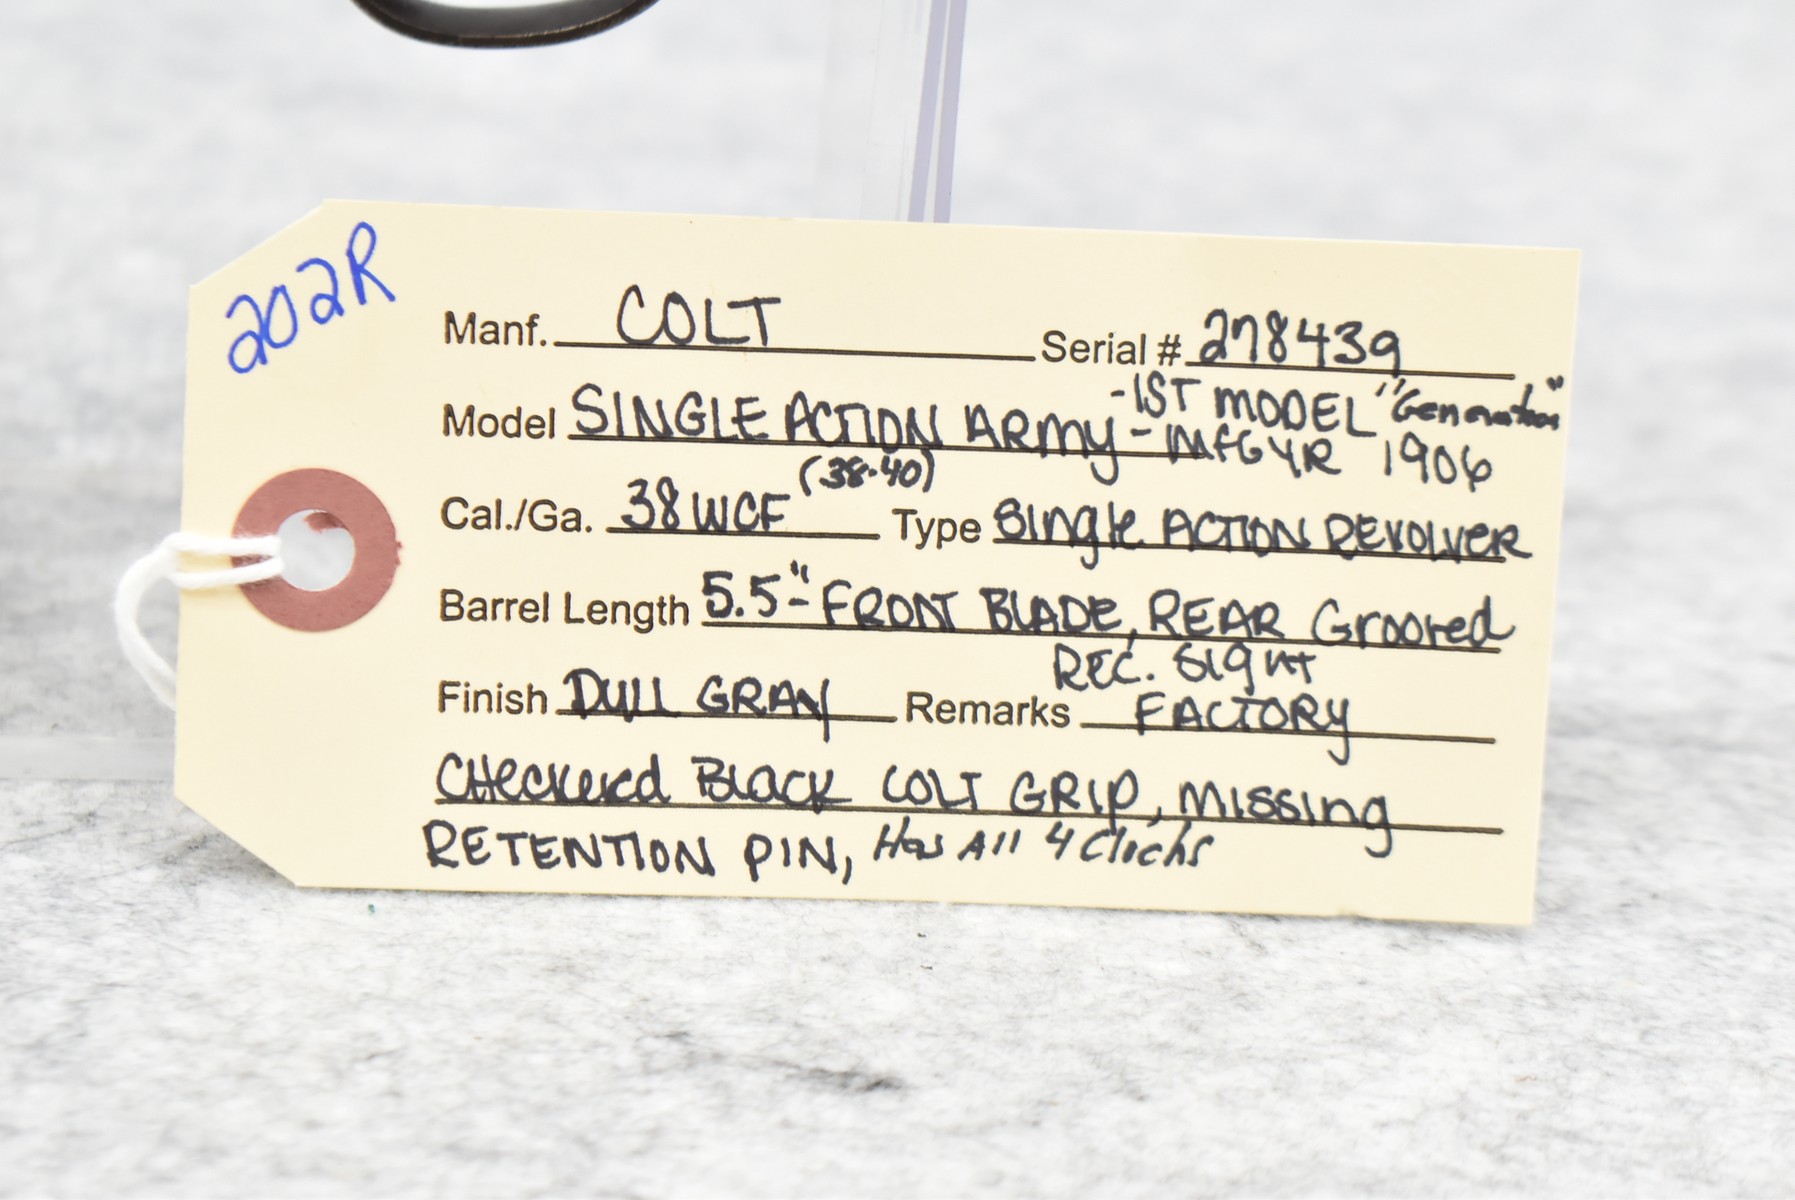 202R
Manf. COLT Serial # 278439
Model SINGLE ACTION ARMY -1ST MODEL "Generation"
- MFG YR 1906
(38-40)
Cal./Ga. 38 WCF Type Single ACTION REVOLVER
Barrel Length 5.5"- FRONT BLADE, REAR Grooved
REC. Sight
Finish DULL GRAY Remarks FACTORY
CHeckered Black COLT GRIP, Missing
RETENTION PIN, Has All 4 Clicks